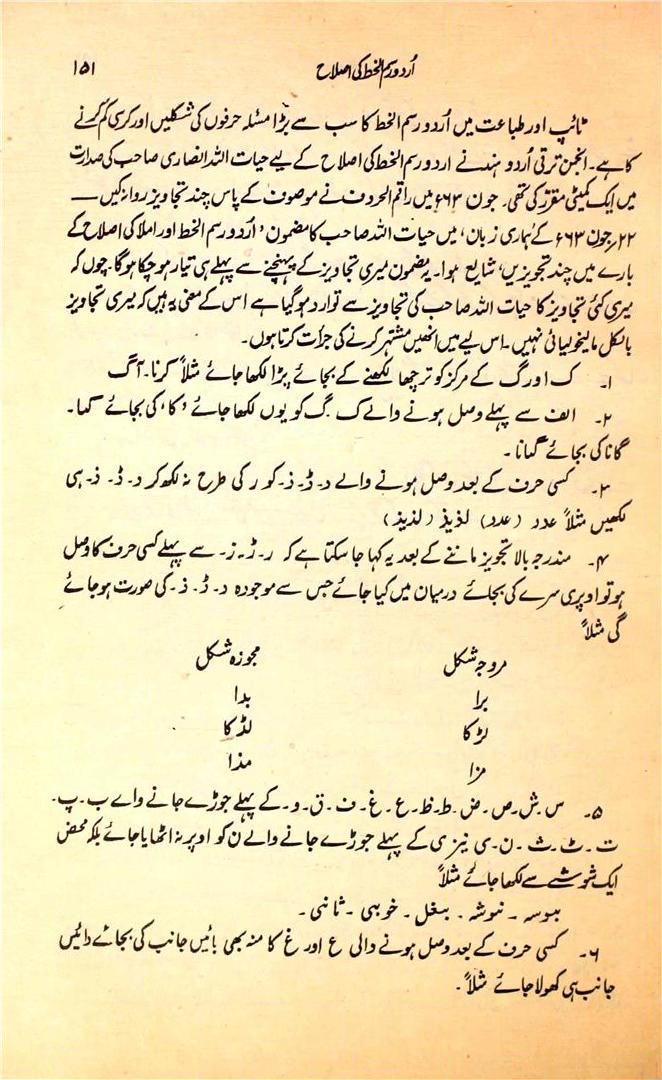 اُردو رسم الخط کی اصلاح ۱۵۱
ٹائپ اور طباعت میں اُردو رسم الخط کا سب سے بڑا مسئلہ حرفوں کی شکلیں اور کرسی کم کرنے
کا ہے۔ انجمن ترقی اُردو ہند نے اردو رسم الخط کی اصلاح کے لیے حیات اللہ انصاری صاحب کی صدارت
میں ایک کمیٹی مقرر کی تھی۔ جون ۶۶۳ میں راقم الحروف نے موصوف کے پاس چند تجاویز روانہ کیں —
۲۲؍جون ۶۶۳ کے ’ہماری زبان‘ میں حیات اللہ صاحب کا مضمون ’اُردو رسم الخط اور املا کی اصلاح کے
بارے میں چند تجویزیں‘ شایع ہوا۔ یہ مضمون میری تجاویز کے پہنچنے سے پہلے ہی تیار ہو چکا ہوگا۔ چوں کہ
میری کئی تجاویز کا حیات اللہ صاحب کی تجاویز سے توارد ہو گیا ہے اس کے معنی یہ ہیں کہ میری تجاویز
بالکل مالیخولیائی نہیں۔ اس لیے میں انھیں مشتہر کرنے کی جرأت کرتا ہوں۔
۱۔ ک اور گ کے مرکز کو ترچھا لکھنے کے بجائے پڑا لکھا جائے مثلاً کرنا۔ آگ
۲۔ الف سے پہلے وصل ہونے والے ک گ کو یوں لکھا جائے ’کا‘ کی بجائے کما۔
گانا کی بجائے گمانا۔
۳۔ کسی حرف کے بعد وصل ہونے والے د۔ ڈ۔ ذ۔ کو ر کی طرح نہ لکھ کر د۔ ڈ۔ ذ۔ ہی
لکھیں مثلاً عدد (عدد) لذیذ (لذیذ)
۴۔ مندرجہ بالا تجویز ماننے کے بعد یہ کہا جا سکتا ہے کہ ر۔ ڑ۔ ز۔ سے پہلے کسی حرف کا وصل
ہو تو اوپری سرے کی بجائے درمیان میں کیا جائے جس سے موجودہ د۔ ڈ۔ ذ۔ کی صورت ہو جائے
گی مثلاً
مروجہ شکل مجوزہ شکل
برا بدا
لڑکا لڈکا
مزا مذا
۵۔ س۔ ش۔ ص۔ ض۔ ط۔ ظ۔ ع۔ غ۔ ف۔ ق۔ و۔ کے پہلے جوڑے جانے والے ب۔ پ۔
ت۔ ٹ۔ ث۔ ن۔ ی نیز ی کے پہلے جوڑے جانے والے ن کو اوپر نہ اٹھایا جائے بلکہ محض
ایک شوشے سے لکھا جائے مثلاً
ببوسہ۔ نبوشہ۔ ببغل۔ خوببی۔ ثاننی۔
۶۔ کسی حرف کے بعد وصل ہونے والی ع اور غ کا منہ بھی بائیں جانب کی بجائے دائیں
جانب ہی کھولا جائے مثلاً۔